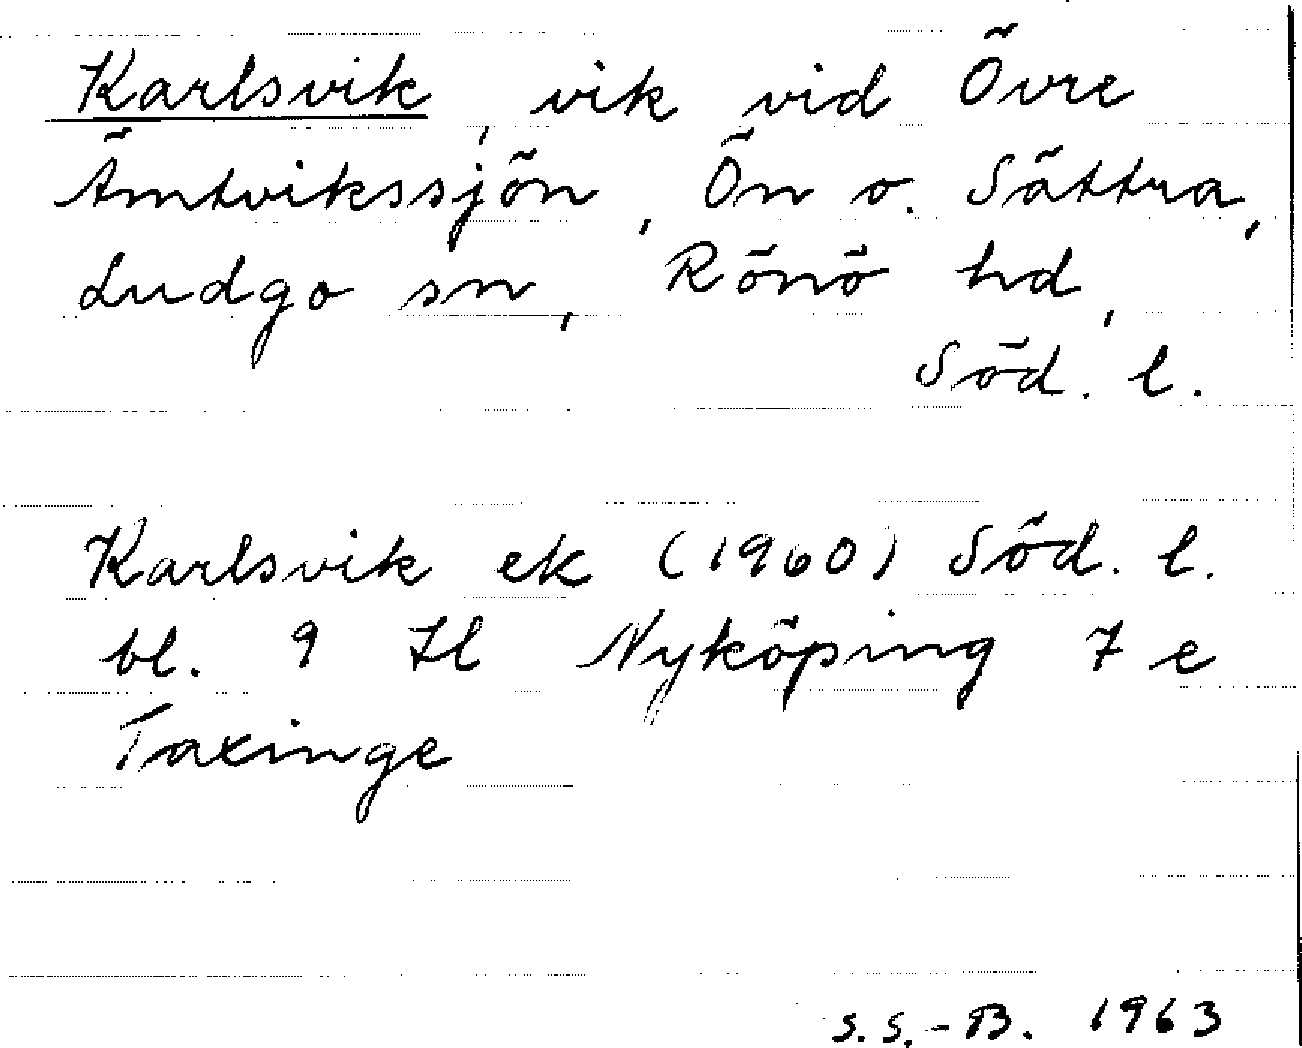 Karlsvik, vik vid Övre
Ämtvikssjön, Ön o. Sättra,
Ludgo sn, Rönö hd,
Söd. l.
Karlsvik ek (1960) Söd. l.
bl. 9 Il Nyköping 7 e
Taxinge
S. S.-B. 1963